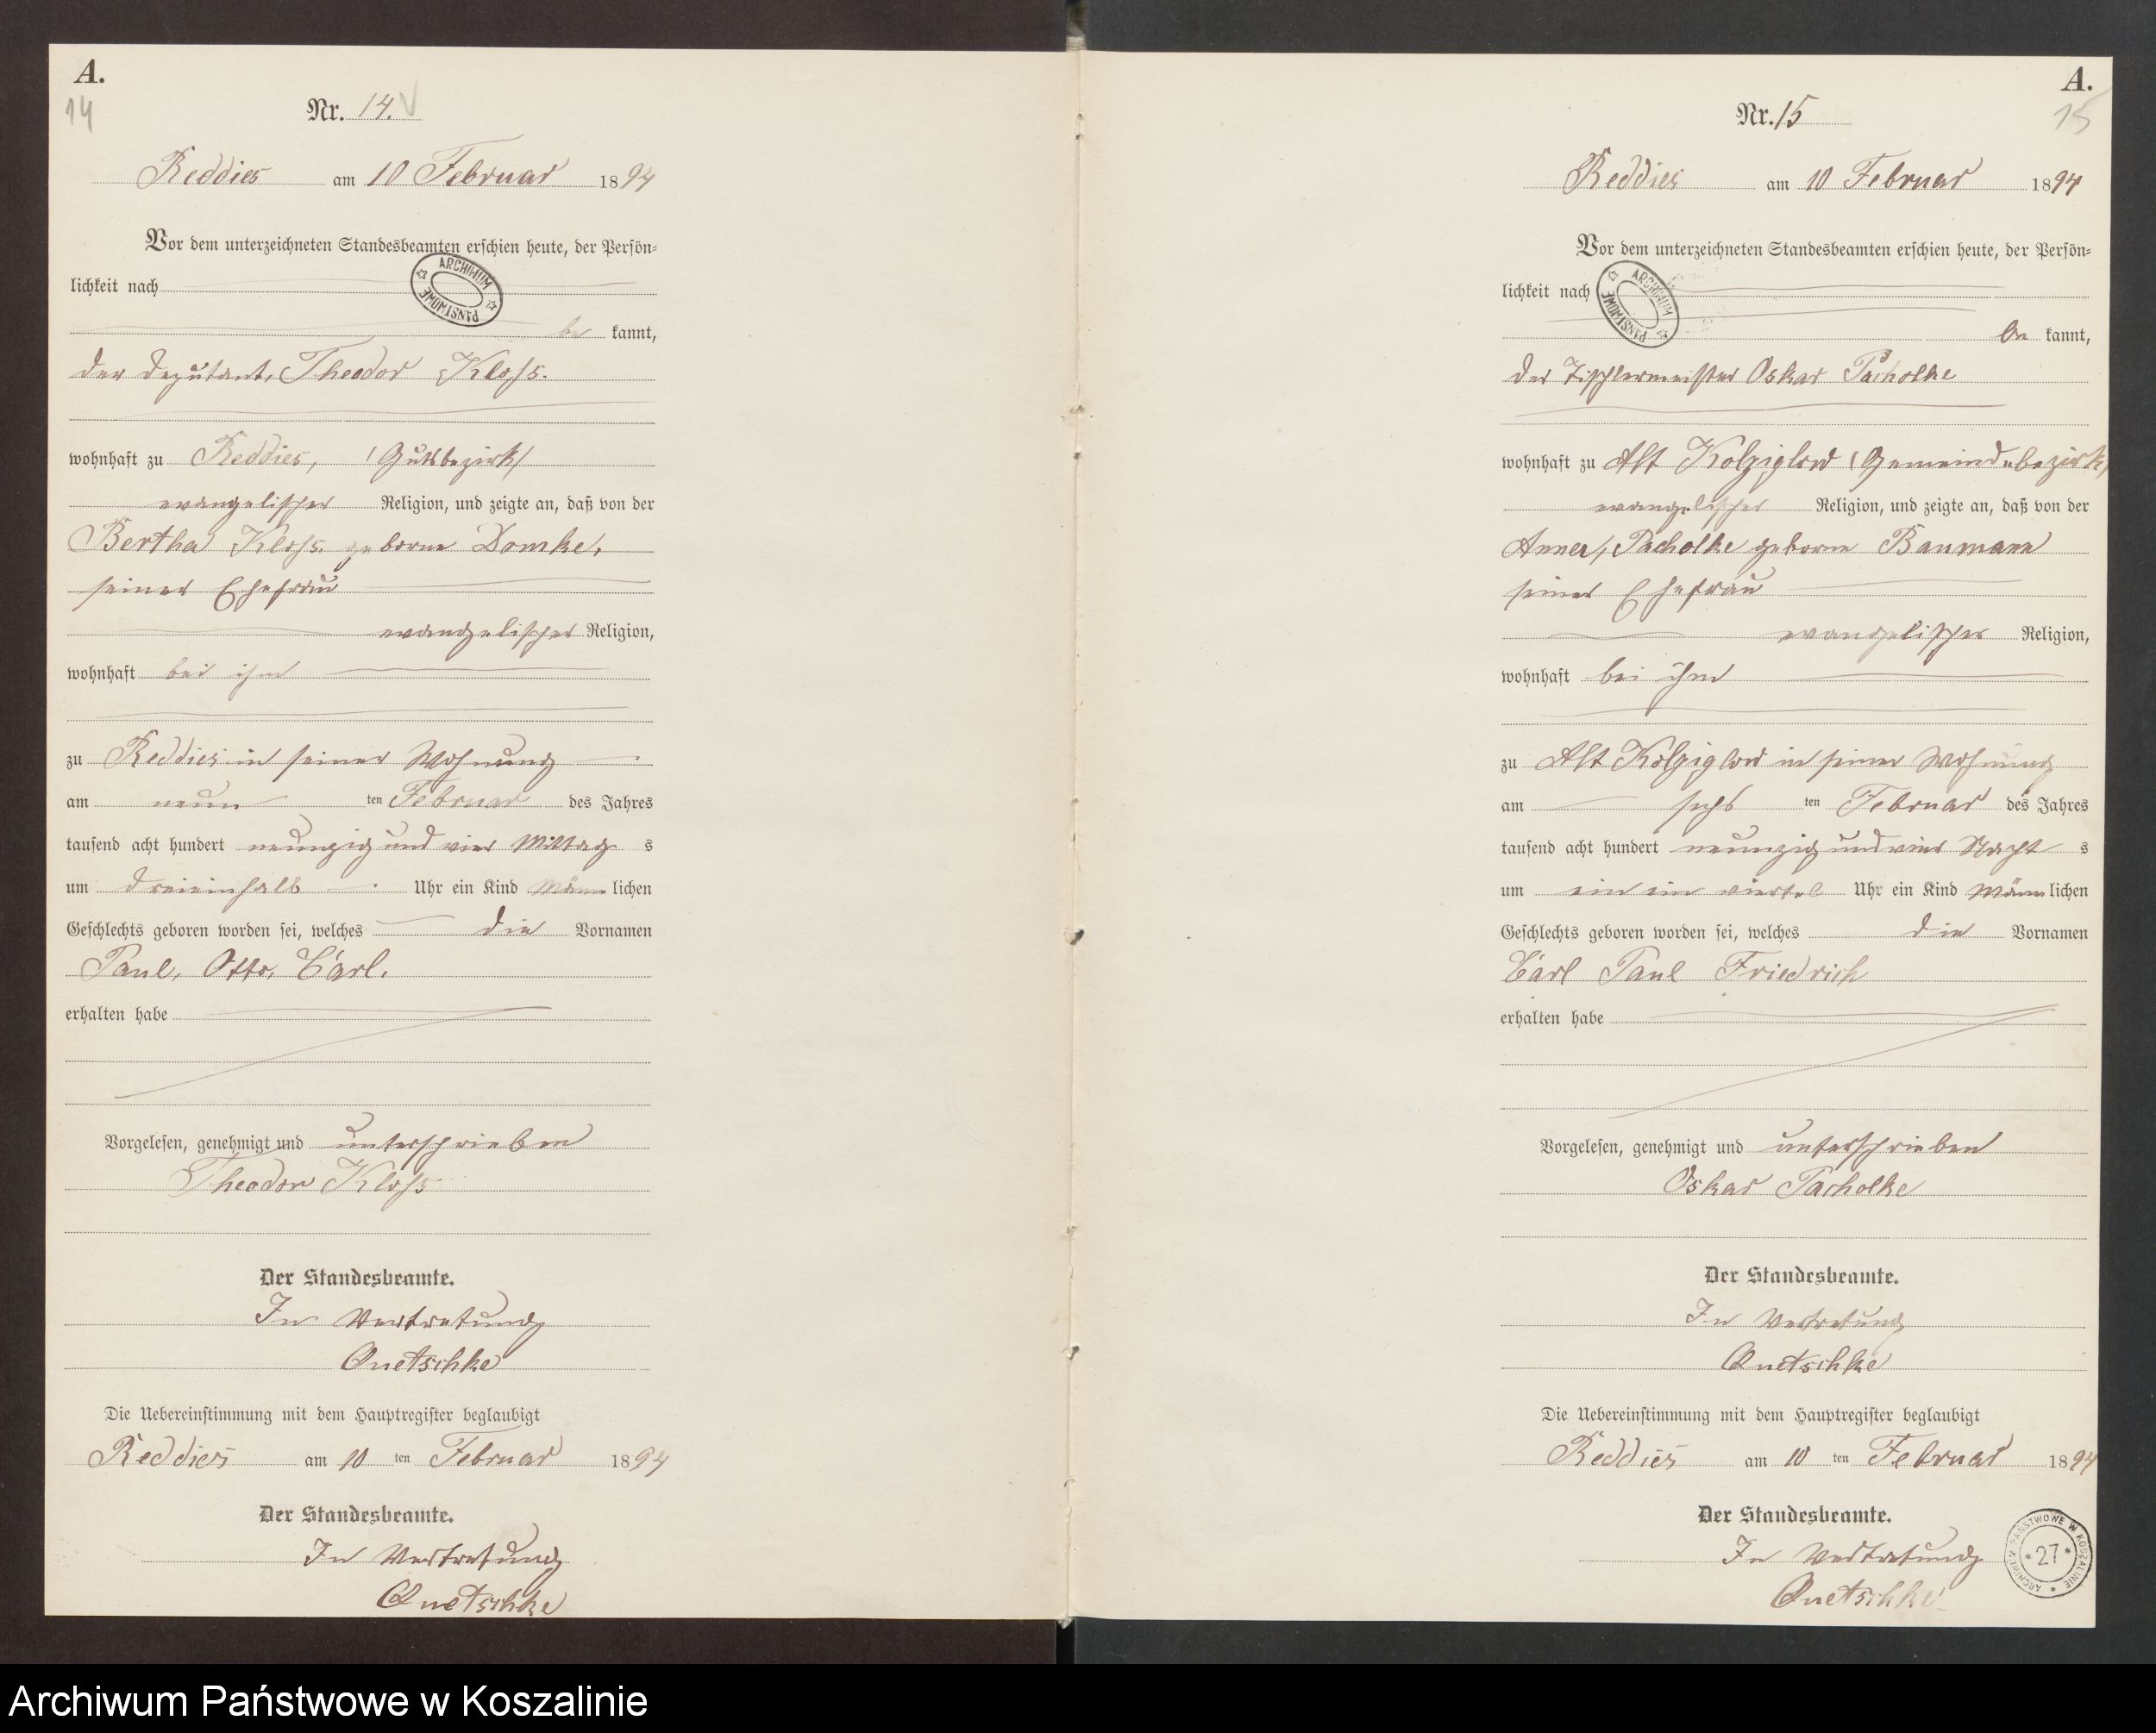 A.
14
Nr. 14.
Reddies am 10 Februar 1894
Vor dem unterzeichneten Standesbeamten erschien heute, der Persön-
lichkeit nach
ARCHIWUM PAŃSTWOWE
be kannt,
der Deputant, Theodor Kloss.
wohnhaft zu Reddies, (Gutsbezirk)
evangelischer Religion, und zeigte an, daß von der
Bertha Kloss. geborne Domke,
seiner Ehefrau
evangelischer Religion,
wohnhaft bei ihm
zu Reddies in seiner Wohnung
am neun ten Februar des Jahres
tausend acht hundert neunzig und vier Mittag s
um dreieinhalb Uhr ein Kind männ lichen
Geschlechts geboren worden sei, welches die Vornamen
Paul, Otto, Carl.
erhalten habe
Vorgelesen, genehmigt und unterschrieben
Theodor Kloss
Der Standesbeamte.
In Vertretung
Quetschke
Die Uebereinstimmung mit dem Hauptregister beglaubigt
Reddies am 10 ten Februar 1894
Der Standesbeamte.
In Vertretung
Quetschke
A.
15
Nr. 15
Reddies am 10 Februar 1894
Vor dem unterzeichneten Standesbeamten erschien heute, der Persön-
lichkeit nach
ARCHIWUM PAŃSTWOWE
be kannt,
der Tischlermeister Oskar Pacholke
wohnhaft zu Alt Kolziglow (Gemeindebezirk)
evangelischer Religion, und zeigte an, daß von der
Anna, Pacholke geborne Baumann
seiner Ehefrau
evangelischer Religion,
wohnhaft bei ihm
zu Alt Kolziglow in seiner Wohnung
am sechs ten Februar des Jahres
tausend acht hundert neunzig und vier Nacht s
um ein ein viertel Uhr ein Kind männ lichen
Geschlechts geboren worden sei, welches die Vornamen
Carl Paul Friedrich
erhalten habe
Vorgelesen, genehmigt und unterschrieben
Oskar Pacholke
Der Standesbeamte.
In Vertretung
Quetschke
Die Uebereinstimmung mit dem Hauptregister beglaubigt
Reddies am 10 ten Februar 1894
Der Standesbeamte.
In Vertretung
Quetschke
ARCHIWUM PAŃSTWOWE W KOSZALINIE
* 27 *
Archiwum Państwowe w Koszalinie